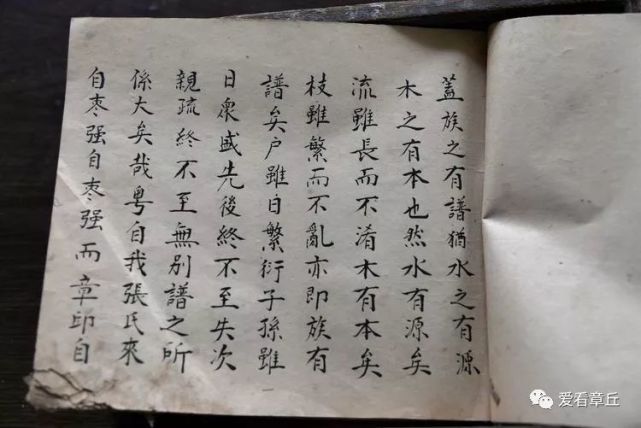 蓋族之有譜猶水之有源
木之有本也然水有源矣
流雖長而不淆木有本矣
枝雖繁而不亂亦即族有
譜矣户雖日繁衍子孫雖
日衆盛先後終不至失次
親疏終不至無别譜之所
係大矣哉粤自我張氏來
自枣强自枣强而章邱自
爱看章丘